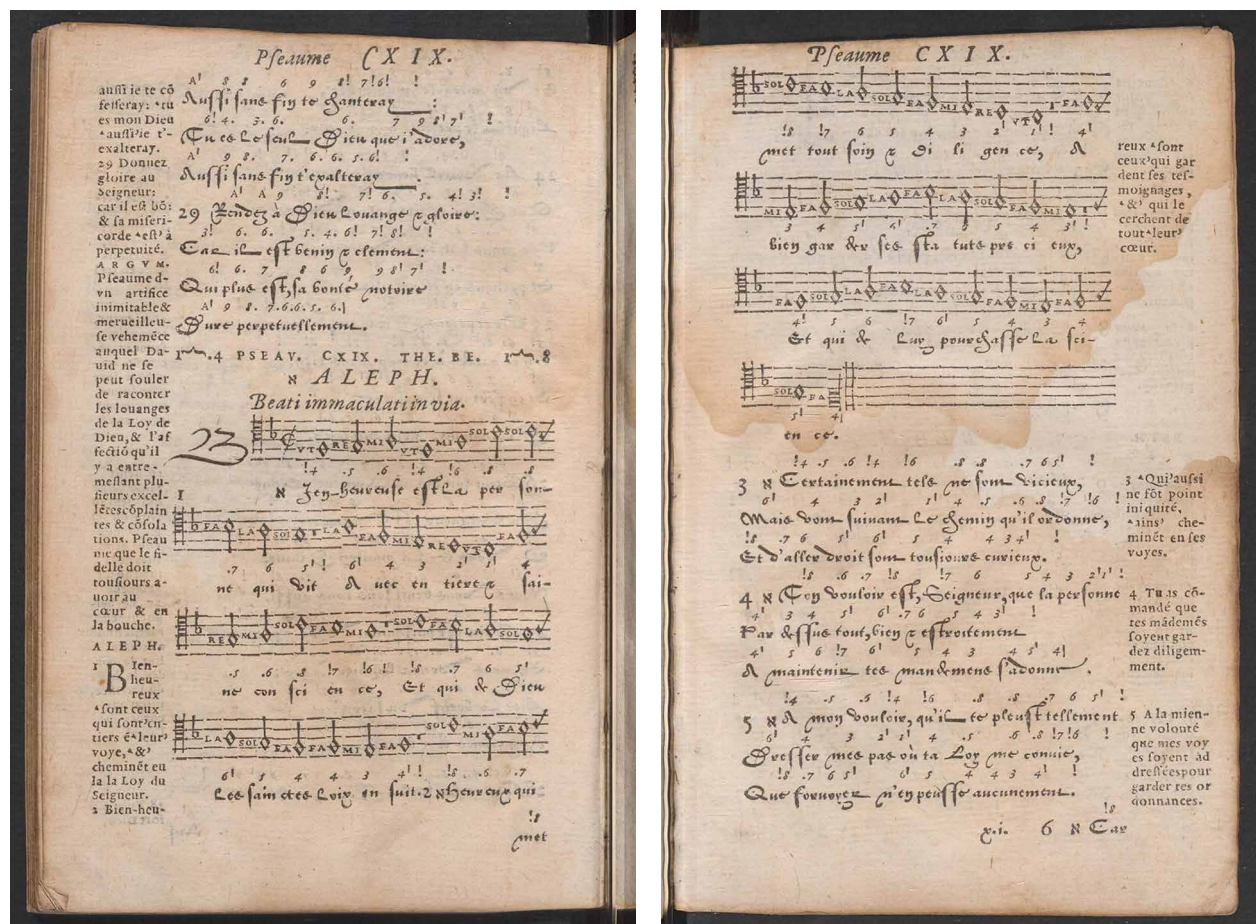 Pseaume CXIX.
aussi ie te cõ
fesseray: ᵃtu
es mon Dieu
ᵃaussi'ie t'-
exalteray.
29 Donnez
gloire au
Seigneur:
car il est bõ:
& sa miseri-
corde ᵃest'à
perpetuité.
ARGVM.
Pseaume d-
vn artifice
inimitable &
merueilleu-
se vehemẽce
auquel Da-
uid ne se
peut souler
de raconter
les louanges
de la Loy de
Dieu, & l'af
fectiõ qu'il
y a entre-
meslant plu-
sieurs excel-
lẽtes cõplain
tes & cõsola
tions. Pseau
me que le fi-
delle doit
tousiours a-
uoir au
cœur & en
la bouche.
ALEPH.
1 Bien-
heu-
reux
ᵃsont ceux
qui sont'en-
tiers ẽᵃleur'
voye, ᵃ&'
cheminẽt en
la la Loy du
Seigneur.
2 Bien-heu-
A! 8 8 6 9 8! 7!6! !
Aussi sans fin te chanteray :
6! 4. 3. 6. 6. 7 9 8! 7! !
Tu es le seul Dieu que i'adore,
A! 9 8. 7. 6. 6. 5. 6! !
Aussi sans fin t'exalteray .
A! A 9 8! 7! 6. 5. 4! 3! !
29 Rendez à Dieu louange & gloire:
3! 6. 6. 5. 4. 6! 7! 8! !
Car il est benin & clement:
6! 6. 7 8 6 9 9 8! 7! !
Qui plus est, sa bonté notoire
A! 9 8. 7.6.6.5. 6.|
Dure perpetuellement.
4 PSEAV. CXIX. THE. BE. 8
א ALEPH.
Beati immaculati in via.
VT RE MI VT MI SOL SOL
!4 .5 .6 !4 !6 .8 .8
1 א Bien-heureuse est la per son-
FA LA SOL LA FA MI RE VT FA
.7 6 5! ! 6 4 3 2! 5! 4
ne qui vit & auec en tiere & sai-
RE MI SOL FA MI SOL FA LA SOL
.5 .6 .8 !7 !6 ! !8 .7 6 5!
ne con sci en ce, Et qui de Dieu
LA SOL FA FA MI FA SOL MI FA
6! 5 4 4 3 4! ! !8 .6 .7
Les sain ctes Loix en suit. 2 א Heureux qui
!8
met
Pseaume CXIX.
SOL FA LA SOL FA MI RE VT FA
!8 !7 6 5 4 3 2! 1! ! 4!
met tout soin & di li gen ce, A
MI FA SOL LA FA LA SOL FA MI
3 4 5! 6 .7 6 5 4 3! !
bien gar der ses sta tuts pre ci eux,
FA SOL LA FA LA SOL FA MI FA
4! 5 6 !7 6! 5 4 3 4
Et qui de luy pourchasse la sci-
SOL FA
5! 4|
en ce.
reux ᵃsont
ceux'qui gar
dent ses tes-
moignages,
ᵃ&' qui le
cerchent de
toutᵃleur'
cœur.
!4 .5 .6 !4 !6 .8 .8 .7 6 5! !
3 א Certainement tels ne sont vicieux,
6! 4 3 2! 5! 4 .5 .6 .8 !7 !6 !
Mais vont suiuant le chemin qu'il ordonne,
!8 .7 6 5! 6 4 5 4 3 4! !
Et d'aller droit sont tousiours curieux.
!8 .6 .7 !8 !7 6 5 4 3 2!1! !
4 א Ton vouloir est, Seigneur, que la personne
4! 3 4 5! 6! .7 6 5 4 3! !
Par dessus tout, bien & estroitement
4! 5 6 !7 6! 5 4 3 4 5! 4|
A maintenir tes mandemens s'adonne.
!4 .5 .6 !4 !6 .8 .8 .7 6 5! !
5 א A mon vouloir, qu'il te pleust tellement
6! 4 3 2! 2! 4 .5 .6 .8 !7!6 !
Dresser mes pas où ta Loy me conuie,
!8 .7 6 5! 6! 5 4 3 4! !
Que foruoyer n'en peusse aucunement.
!8
x.i. 6 א Car
3 ᵃQui'aussi
ne fõt point
iniquité,
ᵃains' che-
minẽt en ses
voyes.
4 Tu as cõ-
mandé que
tes mãdemẽs
soyent gar-
dez diligem-
ment.
5 A la mien-
ne volouté
que mes voy
es soyent ad
dressées pour
garder tes or
donnances.